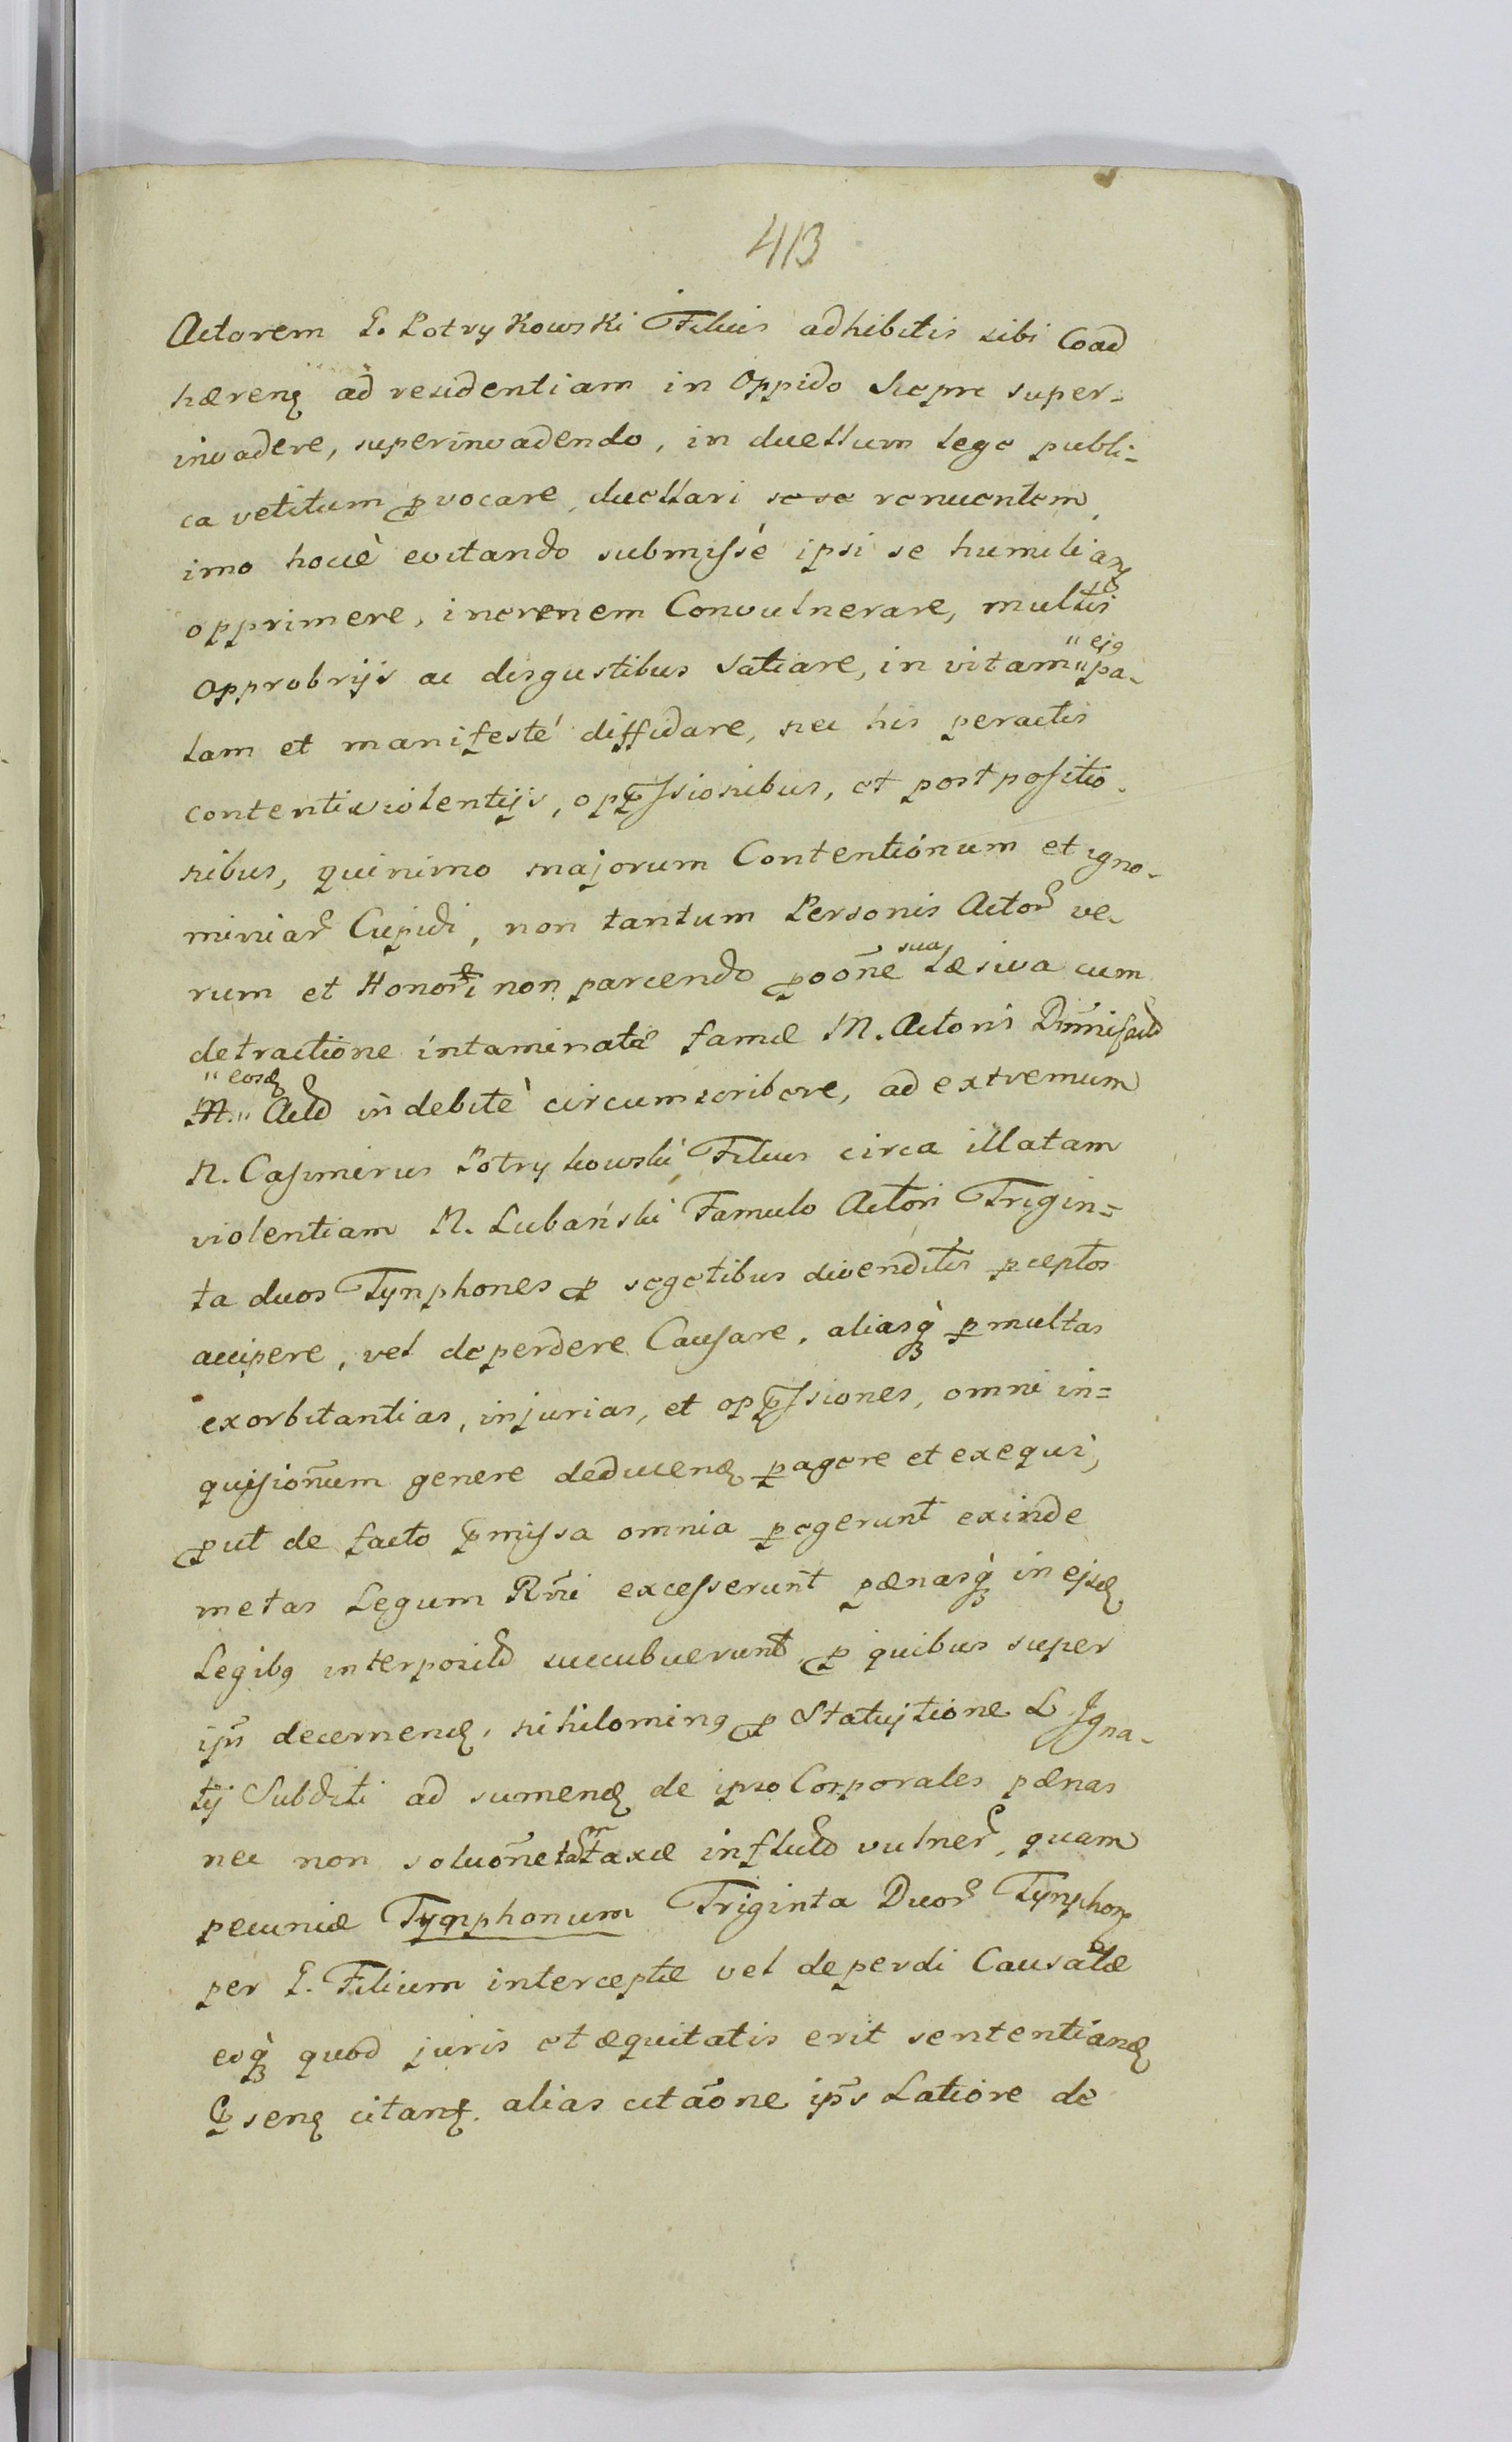 413
Actorem G. Potrykowski Filius adhibitis sibi Coad
hæren ad residentiam in Oppido super-
invadere, superinvadendo, in duellum lege publi-
ca vetitum pvocare, duellari sese renuentem,
imo hocce evitando submisse ipsi se humilian
opprimere, inermem Convulnerare, multis
opprobrijs ac disgustibus Satiare, in vitam "ej9" pa-
lam et manifeste diffidare, nec his peractis
contenti violentijs, oppssionibus, et postpositio-
nibus, quinimo majorum Contentionum et igno-
miniar Cupidi, non tantum Personis Actor ve-
rum et Honori non parcendo poone sua læsiva cum
detractione intaminatæ famæ M. Actoris
" eosd M. " Actd indebitè circumscribere, ad extremum
N. Casimirus Potrykowski Filius circa illatam
violentiam N. Lubański Famulo Actori Trigin=
ta duos Tynphones p segetibus divenditis pceptos
accipere, vel deperdere Causare, aliasq pmultas
exorbitantias, injurias, et oppssiones, omni in=
quisionum genere deducend pagere et exequi,
put de facto pmissa omnia pegerunt exinde
metas Legum Rni excesserunt pænasq in ejsd
Legib9 interposit succubuerunt, p quibus super
ipis decernend, nihilomin9 p Statuitione L. Igna-
tij Subditi ad sumend de ipso Corporales pænas
nec non soluone tam taxæ inflict vulner, quam
pecuniæ Tynphonum Triginta Duor Tynphon
per G. Filium interceptæ vel deperdi Causatæ
eoq quod juris et æquitatis erit sententiand
psen citan. alias citaone ips Latiore de